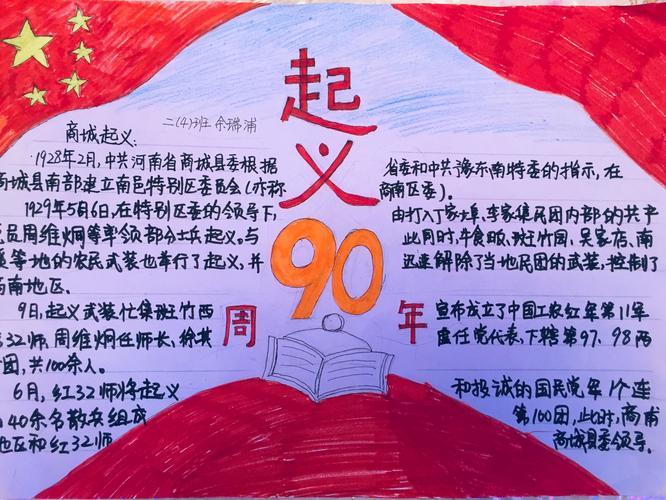 起义
90
周年
二(4)班 余璐浦
商城起义:
1928年2月,中共河南省商城县委根据
省委和中共豫东南特委的指示,在
商城县南部建立南邑特别区委员会(亦称
商南区委)。
1929年5月6日,在特别区委的领导下,
由打入丁家埠、李家集民团内部的共产
党员周维炯等率领部分士兵起义。与
此同时,牛食畈、斑竹园、吴家店、南
等地的农民武装也举行了起义,并
迅速解除了当地民团的武装,控制了
商南地区。
9日,起义武装忙集斑竹西
宣布成立了中国工农红军第11军
32师,周维炯任师长、徐其
虚任党代表,下辖第97、98两
团,共100余人。
6月,红32师将起义
和投诚的国民党军1个连
40余名散兵组成
第100团,此时,商南
地区和红32师
商城县委领导。